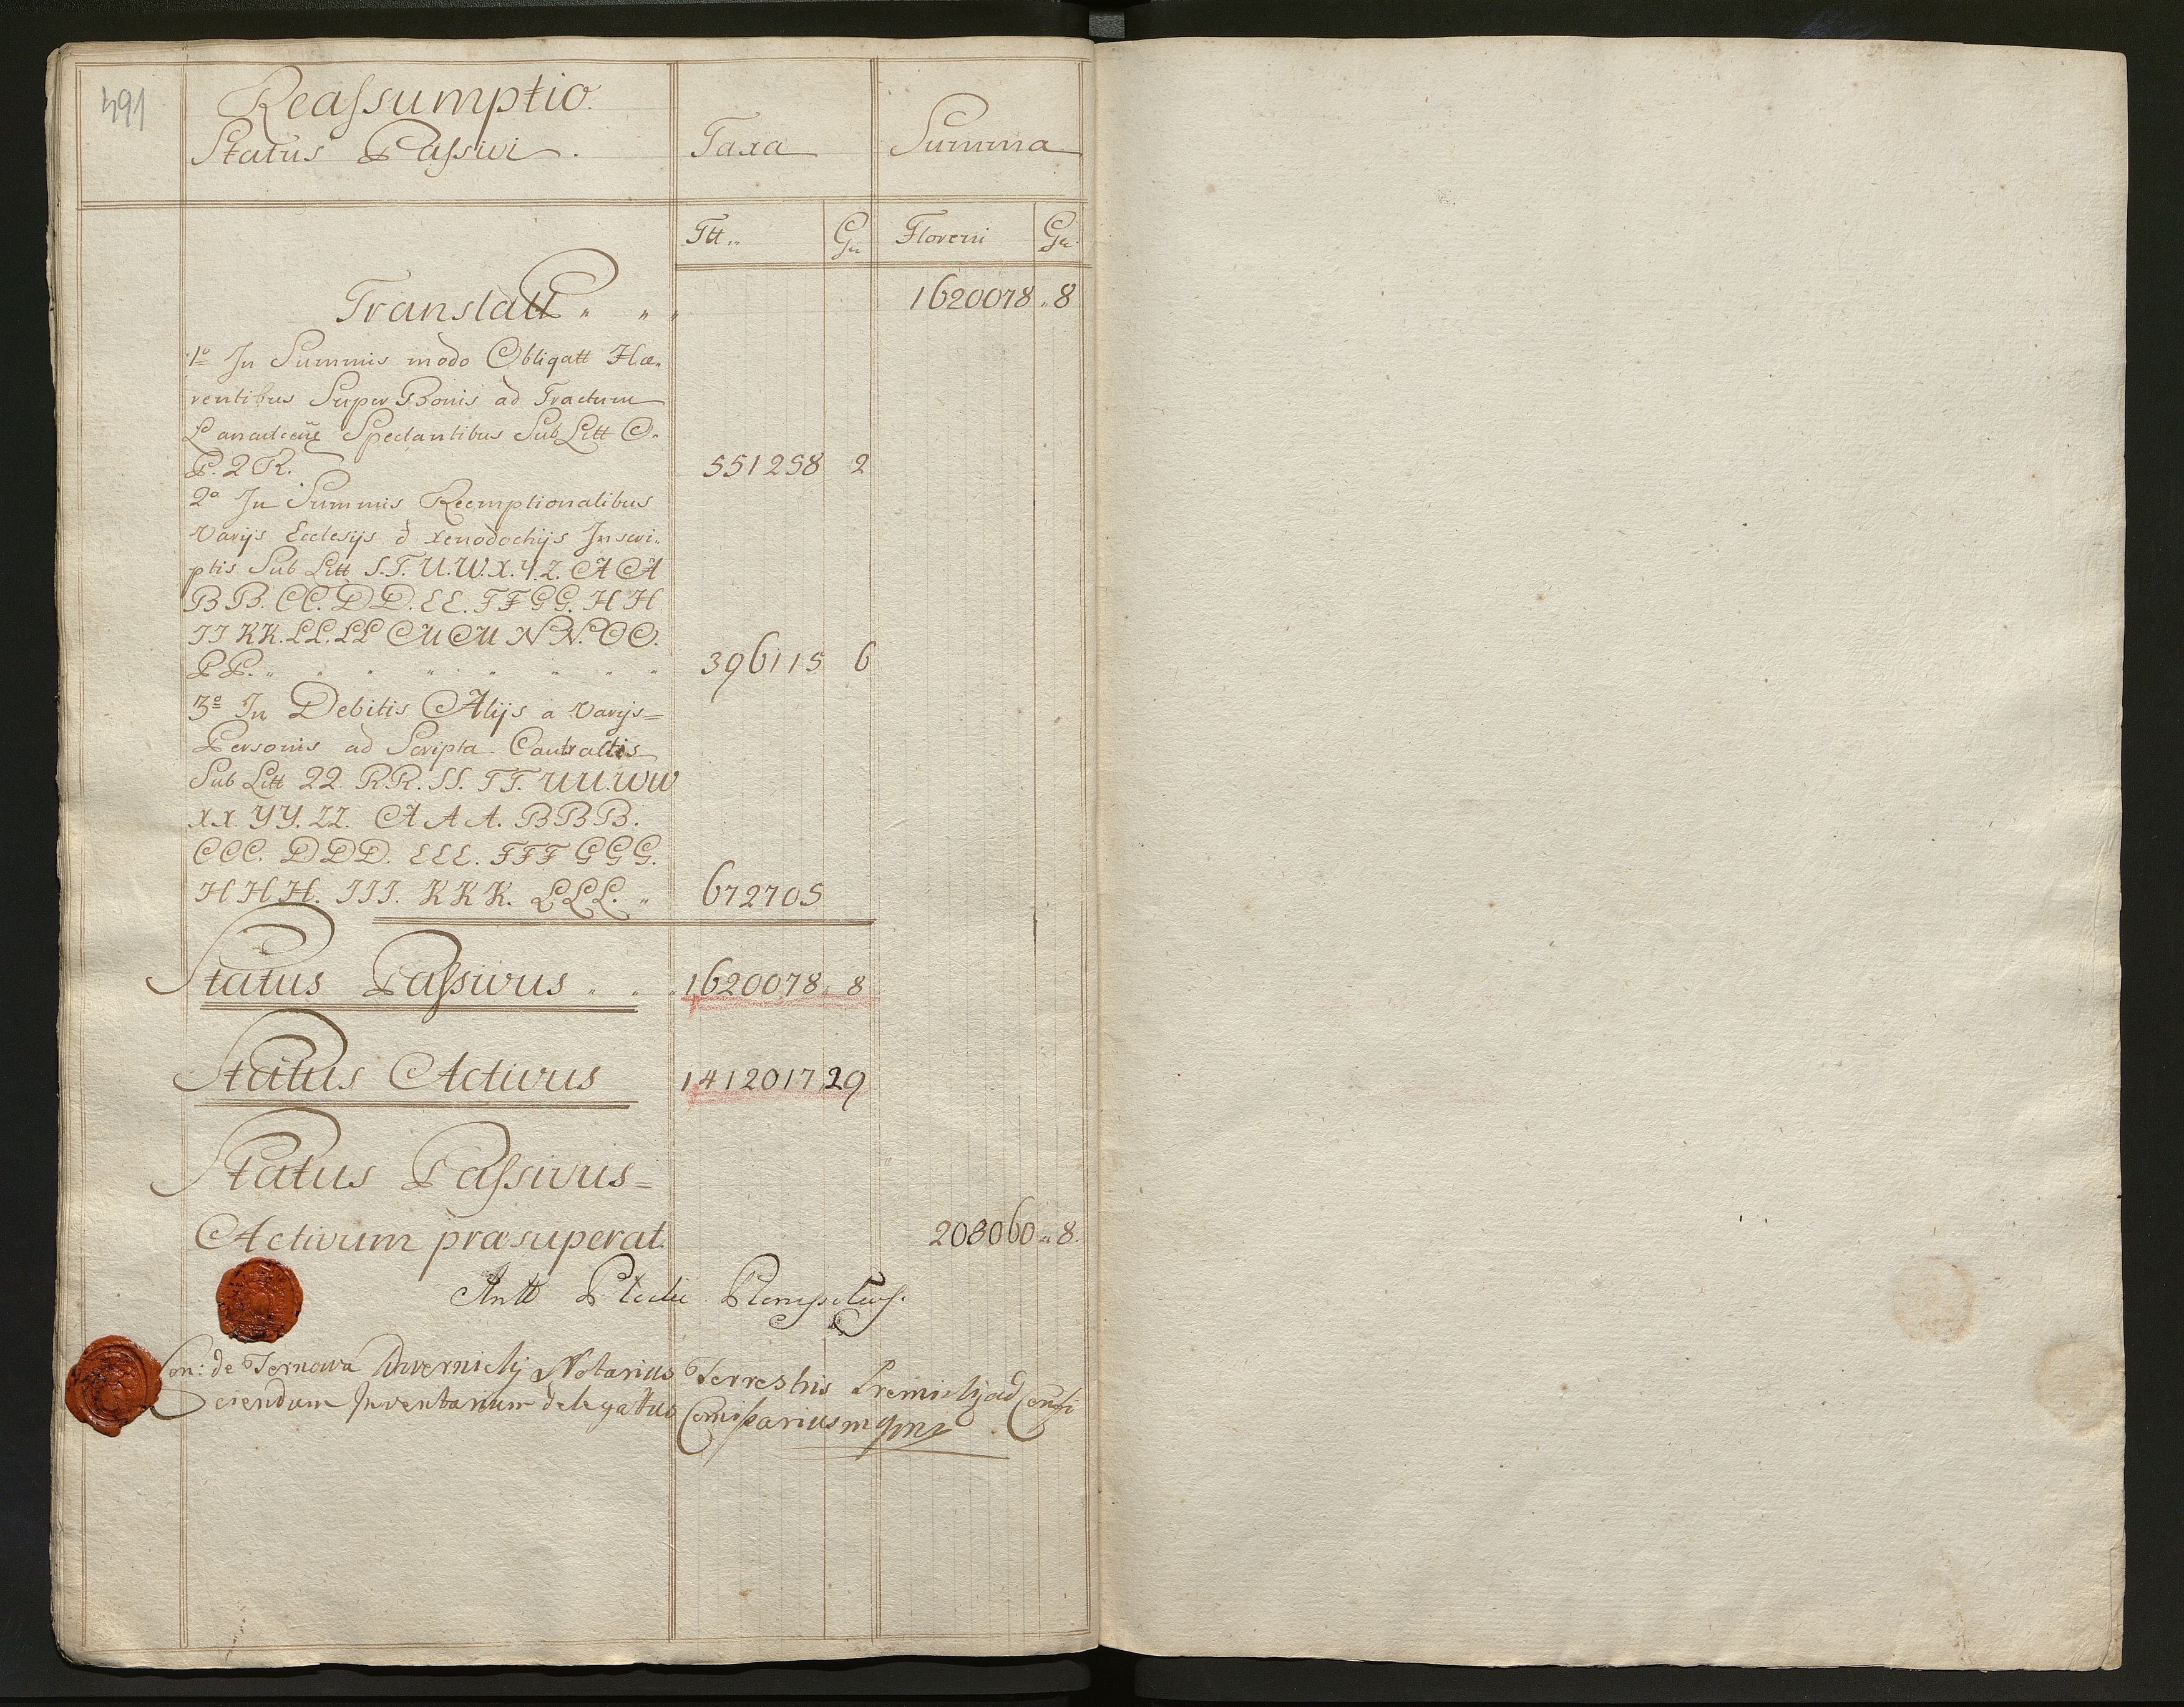 491
Reassumptio.
Status Passivi.
Taxa
Summa
Ftt„ Gr Floreni Gr.
Translatt „ „ „ 1620078 „ 8
1º In Summis modo Obligatt Hæ„
rentibus Super Bonis ad Tractum
Spectantibus Sub Litt O.
P. 2 R. 551258 2
2º In Summis Reemptionalibus
Varijs Ecclesijs & Xenodochijs Inscri„
ptis Sub Litt S. T. U. W. X. Y. Z. A A
B B. CC. D D. E E. F F G G. H H
I I K K. L L. L L M M N N. O O.
P P. „ „ „ „ „ „ „ „ 396115 6
3º In Debitis Alijs a Varijs=
Personis ad Scripta Contractis
Sub Litt 22. R R. S S. T T. U U. W W
X X. Y Y. Z Z. A A A. B B B.
C C C. D D D. E E E. F F F G G G.
H H H. I I I. K K K. L L L. „ 672705
Status Passivus „ „ „ 1620078 „ 8
Status Activus 1412017 29
Status Passivus=
Activum præsuperat. 208060 „ 8.
Antt
de Ternawa Notarius Terrestris ad Confi
ciendum Inventarium delegattus Comissarius mppr